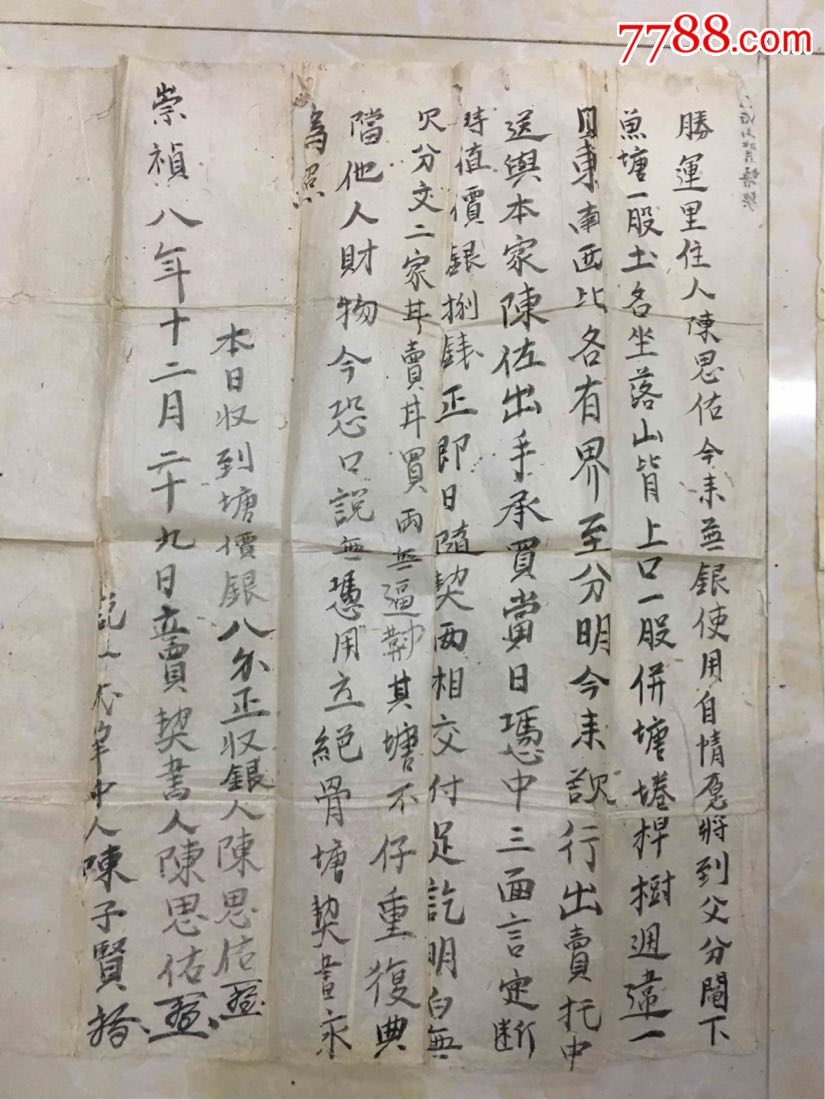 7788.com
勝運里住人陳思佑今来無銀使用自情愿將到父分閹下
魚塘一股土名坐落山背上口一股併塘塍桿樹週違一
東南西比各有界至分明今来説行出賣托中
送與本家陳佐出手承買當日憑中三面言定断
時值價銀捌錢正即日隨契两相交付足訖明白無
欠分文二家甘賣甘買両無逼勒其塘不仔重復典
當他人財物今恐口說無憑用立絕骨塘契書永
為照
本日收到塘價銀八分正收銀人陳思佑
崇禎八年十二月二十九日立賣契書人陳思佑
中人陳子賢